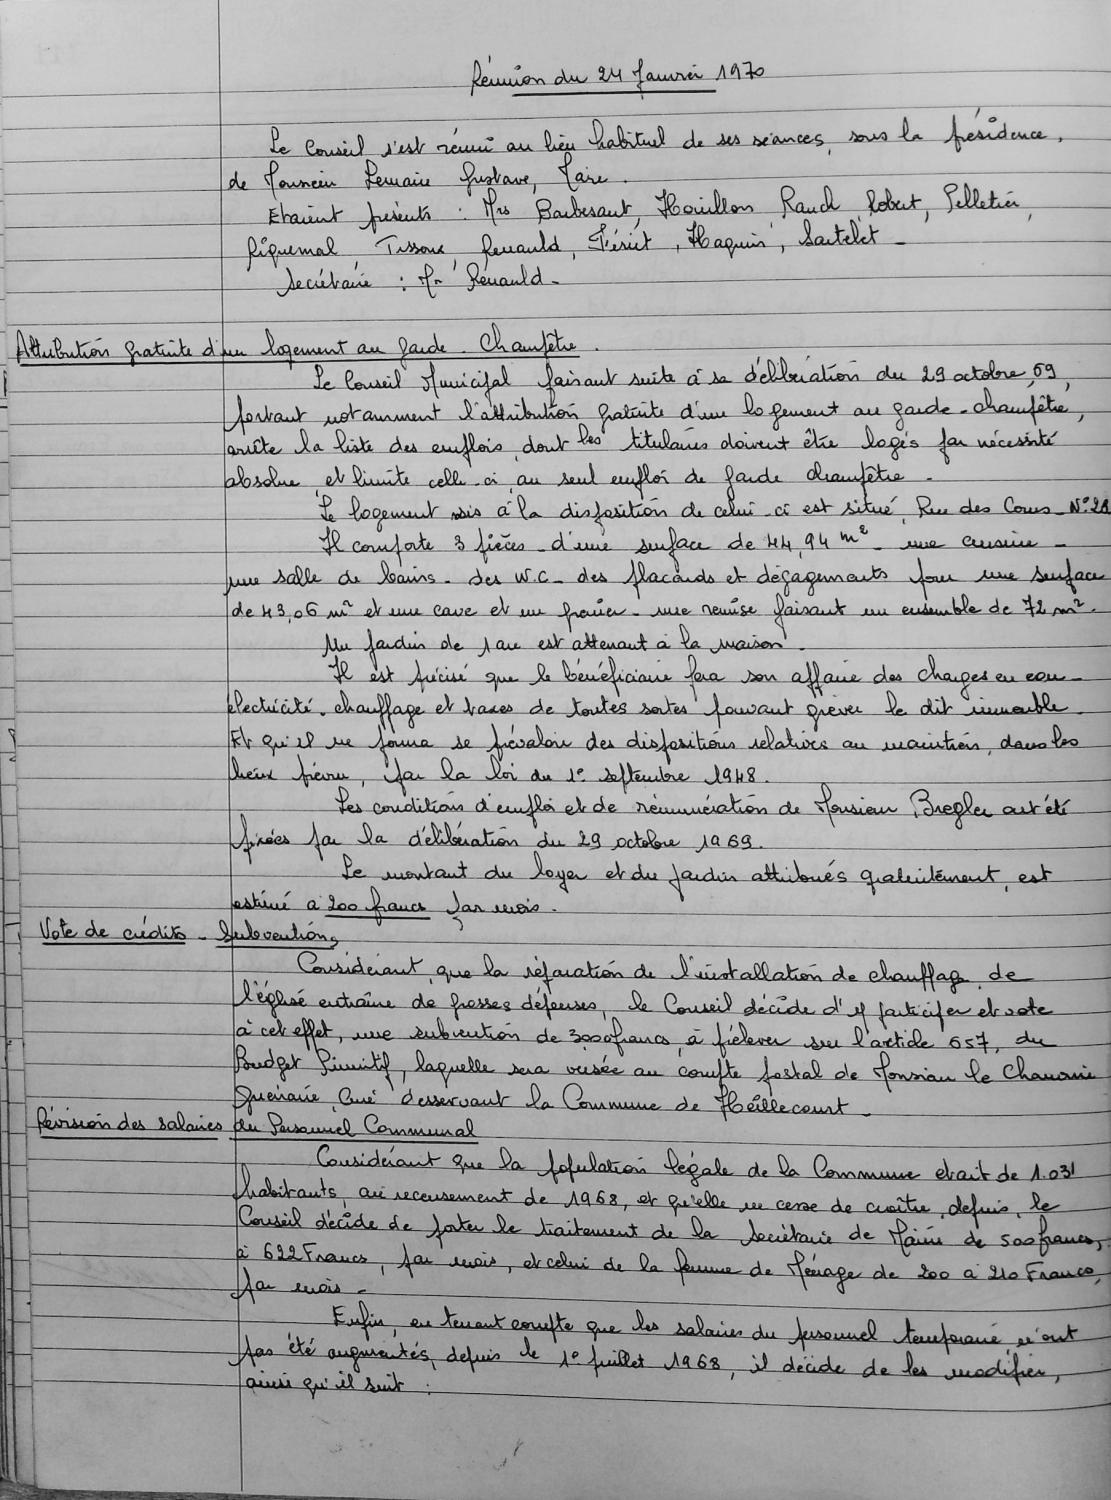 Réunion du 24 Janvier 1970
Le Conseil s'est réuni au lieu habituel de ses séances, sous la présidence,
de Monsieur Lemaire Gustave, Maire.
Etaient présents : Mrs Barbesant, Houillon, Rauch, Robert, Pelletier,
Riquemal, Tissoux, Renauld, Fériet, Haquin, Sartelet -
Secrétaire : Mr Renauld -
Attribution gratuite d'un logement au garde - Champêtre.
Le Conseil Municipal faisant suite à sa délibération du 29 octobre, 69,
portant notamment l'attribution gratuite d'un logement au garde - champêtre,
arrête la liste des emplois, dont les titulaires doivent être logés par nécessité
absolue et limite celle-ci, au seul emploi de garde champêtre -
Le logement mis à la disposition de celui-ci est situé, Rue des Cours - N° 28
Il comporte 3 pièces - d'une surface de 44,94 m² - une cuisine -
une salle de bains - des W.C - des placards et dégagements pour une surface
de 43,06 m² et une cave et un grenier - une remise faisant un ensemble de 72 m².
Un jardin de 1 are est attenant à la maison.
Il est précisé que le bénéficiaire fera son affaire des charges en eau -
électricité - chauffage et taxes de toutes sortes pouvant grever le dit immeuble.
Et qu'il ne pourra se prévaloir des dispositions relatives au maintien, dans les
lieux prévu, par la loi du 1° septembre 1948.
Les conditions d'emploi et de rémunération de Monsieur Bregler ont été
fixées par la délibération du 29 octobre 1969.
Le montant du loyer et du jardin attribués gratuitement, est
estimé à 200 francs par mois.
Vote de crédits - Subventions
Considérant que la réparation de l'installation de chauffage de
l'église entraîne de grosses dépenses, le Conseil décide d'y participer et vote
à cet effet, une subvention de 3000 francs à prélever sur l'article 657, du
Budget Primitif, laquelle sera versée au compte postal de Monsieur le Chanoine
Curé desservant la Commune de Heillecourt -
Révision des salaires du Personnel Communal
Considérant que la population légale de la Commune etait de 1.031
habitants, au recensement de 1968, et qu'elle ne cesse de croître, depuis, le
Conseil décide de porter le traitement de la Secrétaire de Mairie de 500 francs,
à 622 Francs, par mois, et celui de la femme de Ménage de 200 à 210 Francs,
par mois -
Enfin, en tenant compte que les salaires du personnel temporaire n'ont
pas été augmentés, depuis le 1° juillet 1968, il décide de les modifier,
ainsi qu'il suit :